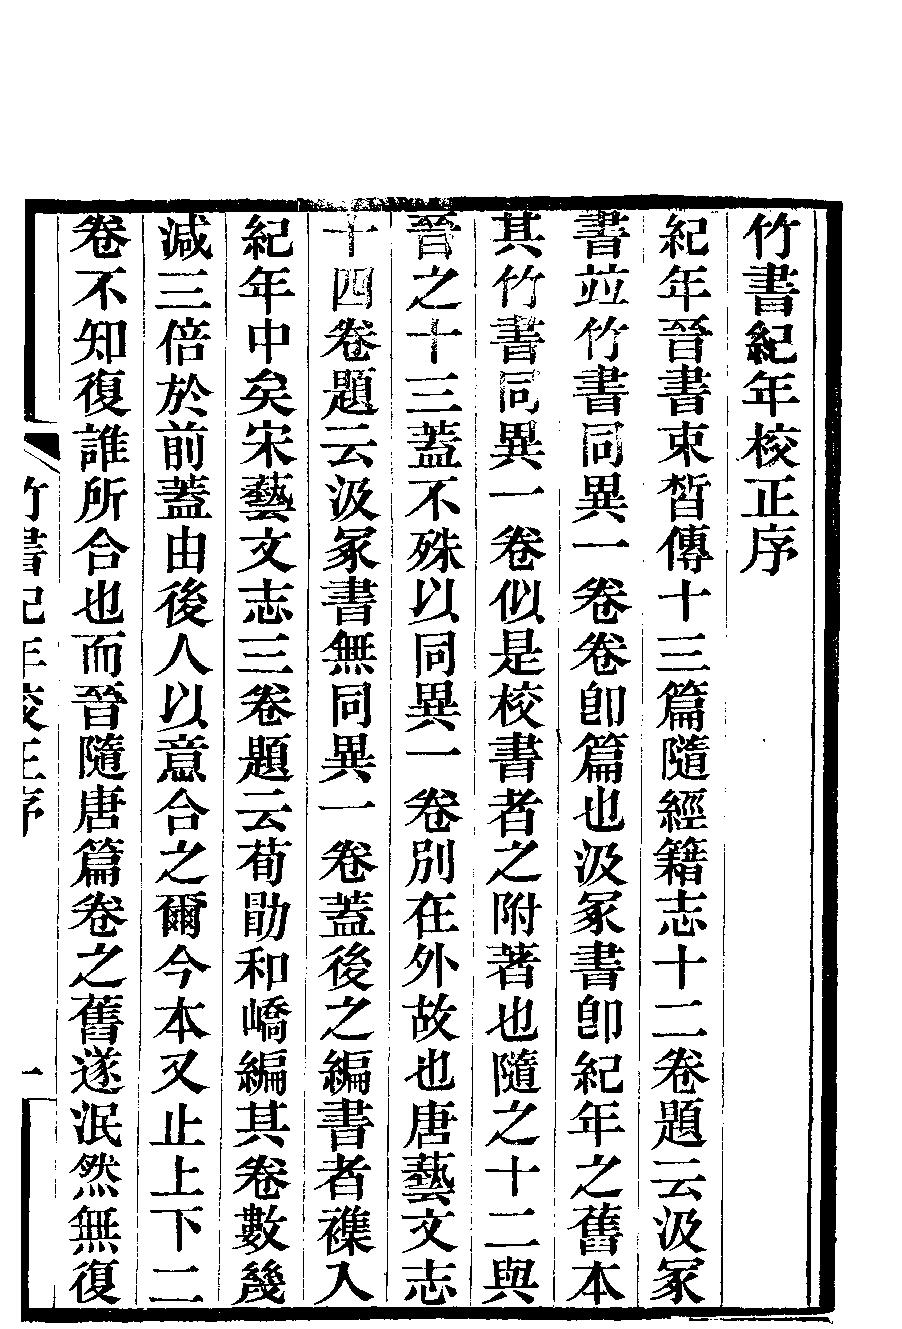 竹書紀年校正序
紀年晉書束晳傳十三篇隨經籍志十二卷題云汲冢
書竝竹書同異一卷卷卽篇也汲冢書卽紀年之舊本
其竹書同異一卷似是校書者之附著也隨之十二與
晉之十三蓋不殊以同異一卷別在外故也唐藝文志
十四卷題云汲冢書無同異一卷蓋後之編書者襍入
紀年中矣宋藝文志三卷題云荀勖和嶠編其卷數幾
減三倍於前蓋由後人以意合之爾今本又止上下二
卷不知復誰所合也而晉隨唐篇卷之舊遂泯然無復
竹書紀年校正序
一